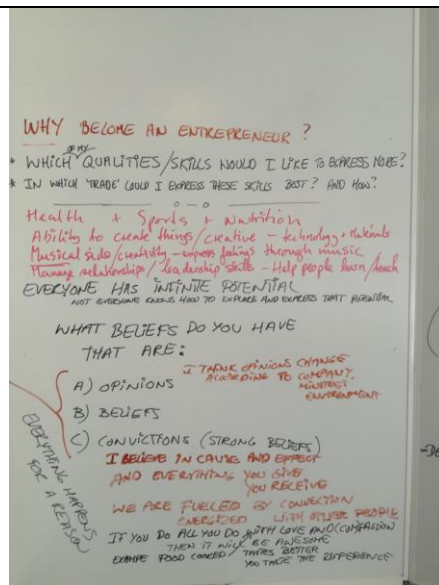 WHY BECOME AN ENTREPRENEUR ?
OF MY
* WHICH QUALITIES/SKILLS WOULD I LIKE TO EXPRESS MORE?
* IN WHICH 'TRADE' COULD I EXPRESS THESE SKILLS BEST? AND HOW?
Health + Sports + Nutrition
Ability to create things/creative - technology + Materials
Musical side/creativity - express feelings through music
Manage relationships/leadership skills - Help people learn/teach
EVERYONE HAS INFINITE POTENTIAL
NOT EVERYONE KNOWS HOW TO EXPLORE AND EXPRESS THAT POTENTIAL
WHAT BELIEFS DO YOU HAVE
THAT ARE:
I THINK OPINIONS CHANGE
ACCORDING TO COMPANY,
MINDSET
ENVIRONMENT
A) OPINIONS
B) BELIEFS
C) CONVICTIONS (STRONG BELIEFS)
EVERYTHING HAPPENS
FOR A REASON
I BELIEVE IN CAUSE AND EFFECT
AND EVERYTHING YOU GIVE
YOU RECEIVE
WE ARE FUELED BY CONNECTION
ENERGIZED WITH OTHER PEOPLE
IF YOU DO ALL YOU DO WITH LOVE AND (COMPASSION
THEN IT WILL BE AWESOME
EXAMPE FOOD COOKED TASTES BETTER
YOU TASTE THE DIFFERENCE